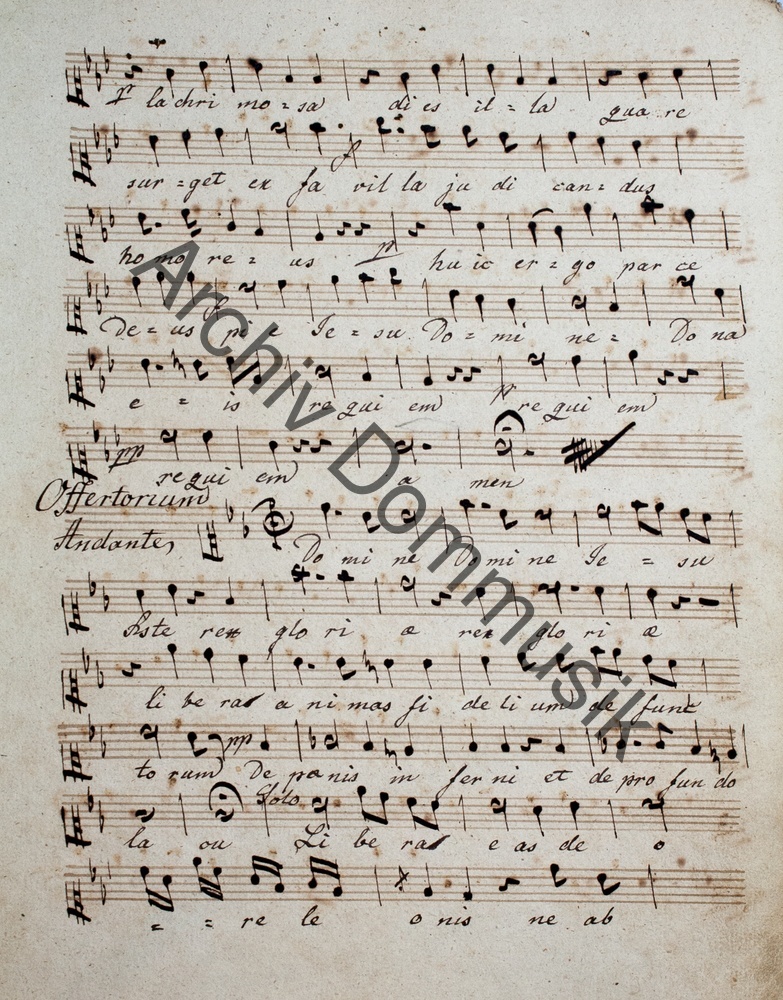 p la chri mo = sa di es il = la qua re
sur = get ex fa vil la ju di can = dus
ho mo re = us p hu ic er = go par ce
De = us pi e Ie = su Do = mi ne = Do na
e = is re qui em re qui em
pp re qui em a men
Offertorium
Andante
Do mi ne Do mi ne Ie = su
rex glo ri æ rex glo ri æ
li be ras a ni mas fi de li um de func
to rum pp De pœnis in fer ni et de pro fun do
Solo
la cu Li be ras e as de o
= = re le o nis ne ab
Archiv Dommusik